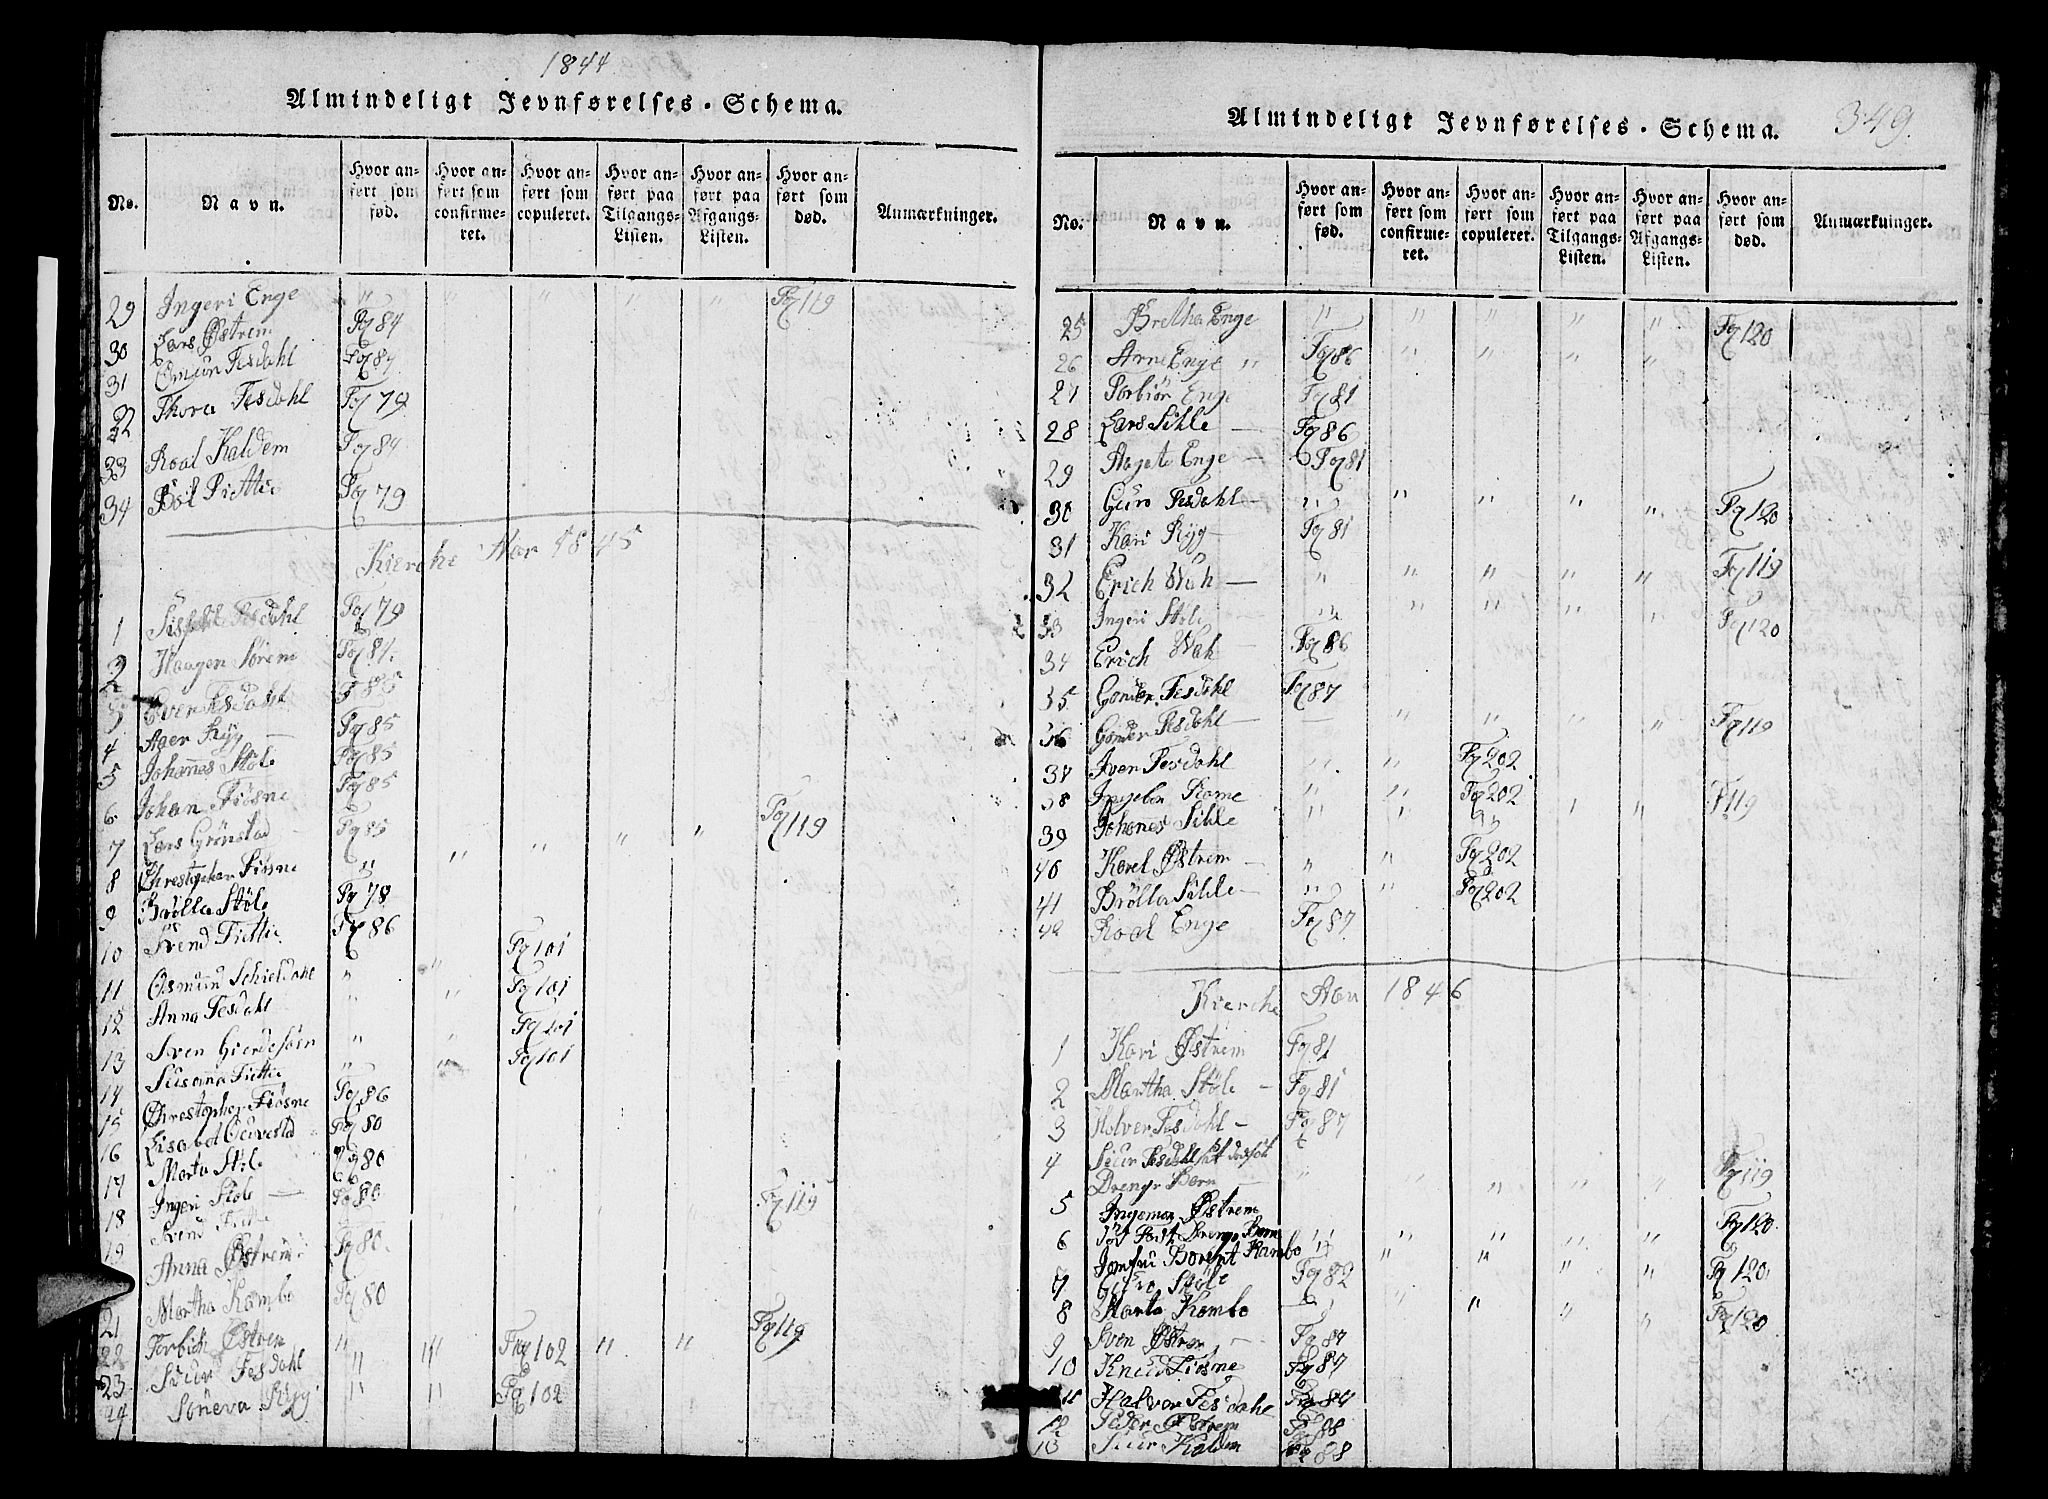 1844
Almindeligt Jevnførelses-Schema.
No.
Navn.
Hvor anført som fød.
Hvor anført som confirmeret.
Hvor anført som copuleret.
Hvor anført paa Tilgangs-Listen.
Hvor anført paa Afgangs-Listen.
Hvor anført som død.
Anmærkninger.
29 Ingeri Enge " " " " " Fg 119
30 Lars Østrem Fg 84
31 Omun Tesdahl Fg 84
32 Thora Tesdahl Fg 79
33 Roal Kaldem Fg 84
34 Böl Fittie Fg 79
Kierche Aar 1845
1 Tesdahl Fg 79
2 Haagen Sørene Fg 84
3 Even Tesdahl F 85
4 Ager Ryg Fg 85
5 Johannes Støle Fg 85
6 Johan Fiøsne Fg 85
7 Lars Grönstad Fg 85 Fg 119
8 Christopher Fiøsne " " " " "
9 Brölla Støle Fg 78
10 Svend Fittie Fg 86
11 Osmund Schieldahl " " Fg 101
12 Anna Tesdahl " " Fg 101
13 Sven Gierdesøin " " Fg 101
14 Susanna Fittie " " Fg 101
15 Christopher Fiøsne Fg 86
16 Lisabet Fg 80
17 Marta Støle Fg 80
18 Ingeri Støle Fg 80
19 Svend Fittie Fg 119
Anna Østrem Fg 80
21 Martha Kambo Fg 80
22 Torbiör Østrem " " Fg 102 " " Fg 119
23 Siur Tesdahl " "
24 Söneva Ryg " " Fg 102
Almindeligt Jevnførelses-Schema.
349.
No.
Navn.
Hvor anført som fød.
Hvor anført som confirmeret.
Hvor anført som copuleret.
Hvor anført paa Tilgangs-Listen.
Hvor anført paa Afgangs-Listen.
Hvor anført som død.
Anmærkninger.
25 Bretha Enge " " " " " Fg 120
26 Arne Enge Fg 86
27 Torbiör Enge Fg 81
28 Lars Sihle Fg 86
29 Aagata Enge Fg 81
30 Guro Tesdahl " " " " " Fg 120
31 Kari Ryg Fg 81
32 Erich Wah " " " " " Fg 119
33 Ingeri Støle " " " " " Fg 120
34 Erich Wah Fg 86
35 Gonder Tesdahl Fg 87
36 Gonder Tesdahl — " " " " Fg 119
37 Iven Tesdahl " " Fg 202
38 Ingebor Rome " " Fg 202
39 Johanes Sihle " " " " " F 119
40 Karel Østrem " " Fg 202
41 Brölla Sihle " " Fg 202
42 Roal Enge Fg 87
Kierche Aar 1846
1 Kari Østrem Fg 81
2 Martha Støle Fg 81
3 Halver Tesdahl Fg 87
4 Siur Tesdahl
Drenge Barn " " " " " Fg 119
5 Ingemor Østrem
6 Död Födt Drenge Barn " " " " " Fg 120
Jomfru Kambo " " " " " Fg 120
7 Guro Støle Fg 82
8 Marta Kambo — " " " " Fg 120
9 Sven Østrem Fg 87
10 Knud Fiøsne Fg 87
11 Halvor Tesdahl Fg 87
12 Peder Østrem Fg 88
13 Siur Kaldem Fg 88